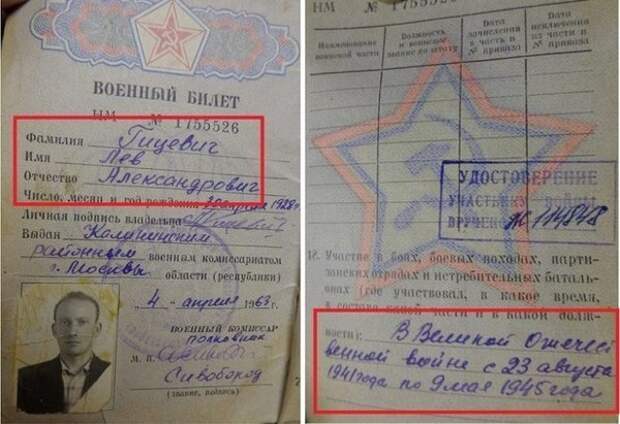 ВОЕННЫЙ БИЛЕТ
НМ № 1755526
Фамилия Гицевич
Имя Лев
Отчество Александрович
Число, месяц и год рождения 30 апреля 1928 г
Личная подпись владельца
Выдан Калининским
районным военным комиссариатом
г. Москвы области (республики)
4 - апреля 1963 г.
ВОЕННЫЙ КОМИССАР
полковник
М. П.
Сивобород
(звание, подпись)
НМ № 1755526
Наименование воинской части
Должность и воинское звание по штату
Дата зачисления в часть и № приказа
Дата исключения из части и № приказа
УДОСТОВЕРЕНИЕ
УЧАСТНИКУ ВОЙНЫ
ВРУЧЕНО Ж 114848
18. Участие в боях, боевых походах, парти-
занских отрядах и истребительных баталь-
онах (где участвовал, в какое время,
в составе какой части и в какой долж-
ности): В Великой Отечест
венной войне с 23 августа
1941 года по 9 мая 1945 года